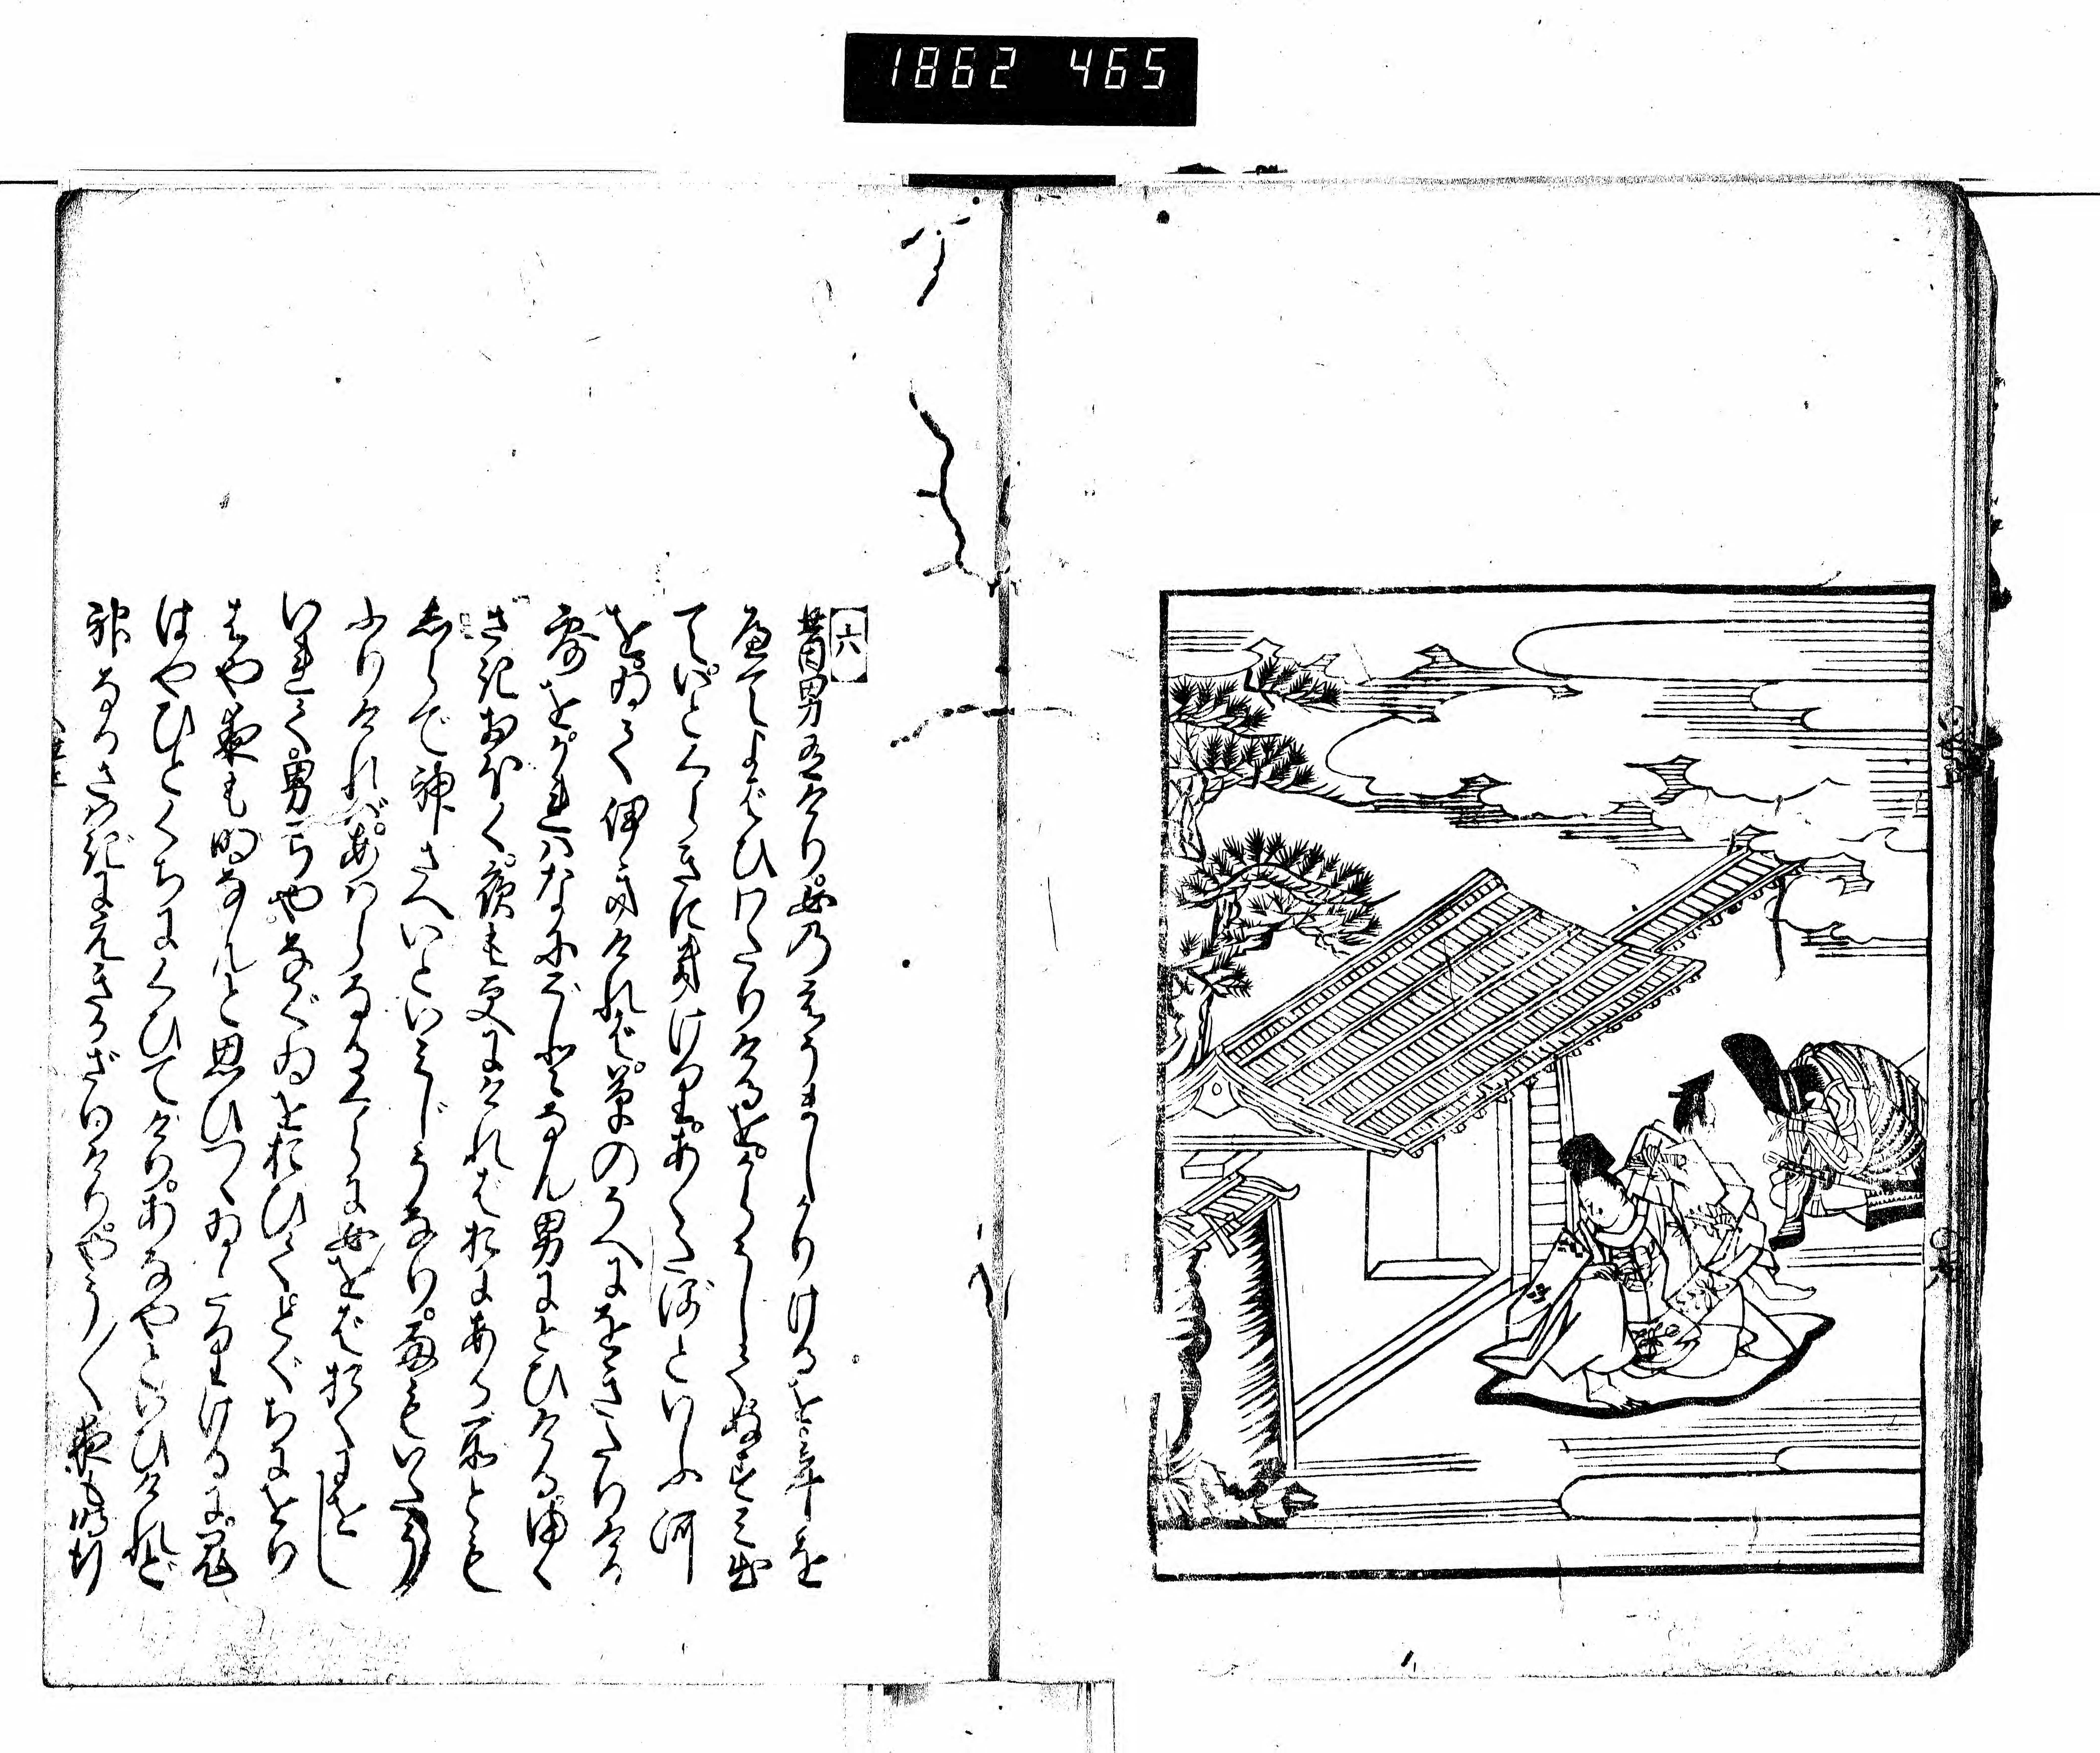 1862 465
六
昔男有けり。女のえうましかりけるを。年を
へてよばひわたりけるを。からうしてぬすみ出
て。いとくらきに来けり。あくた河といふ河
をゐて伊きければ。草のうへにをきたりける
露を。かれはなにぞとなん男にとひける。ゆく
さきおほく。夜も更にければ。おにある所とも
しらで神さへいといみじうなり。雨もいたう
ふりければ。あはらなるくらに女をばおくにをし
いれて。男弓やなぐゐをおひて。とぐちにをり
はや夜も明なんと思ひつゝゐたりけるに。鬼
はやひとくちにくひてけり。あなやといひけれど
神なるさわぎにえきかざりけり。やう／＼夜も明行